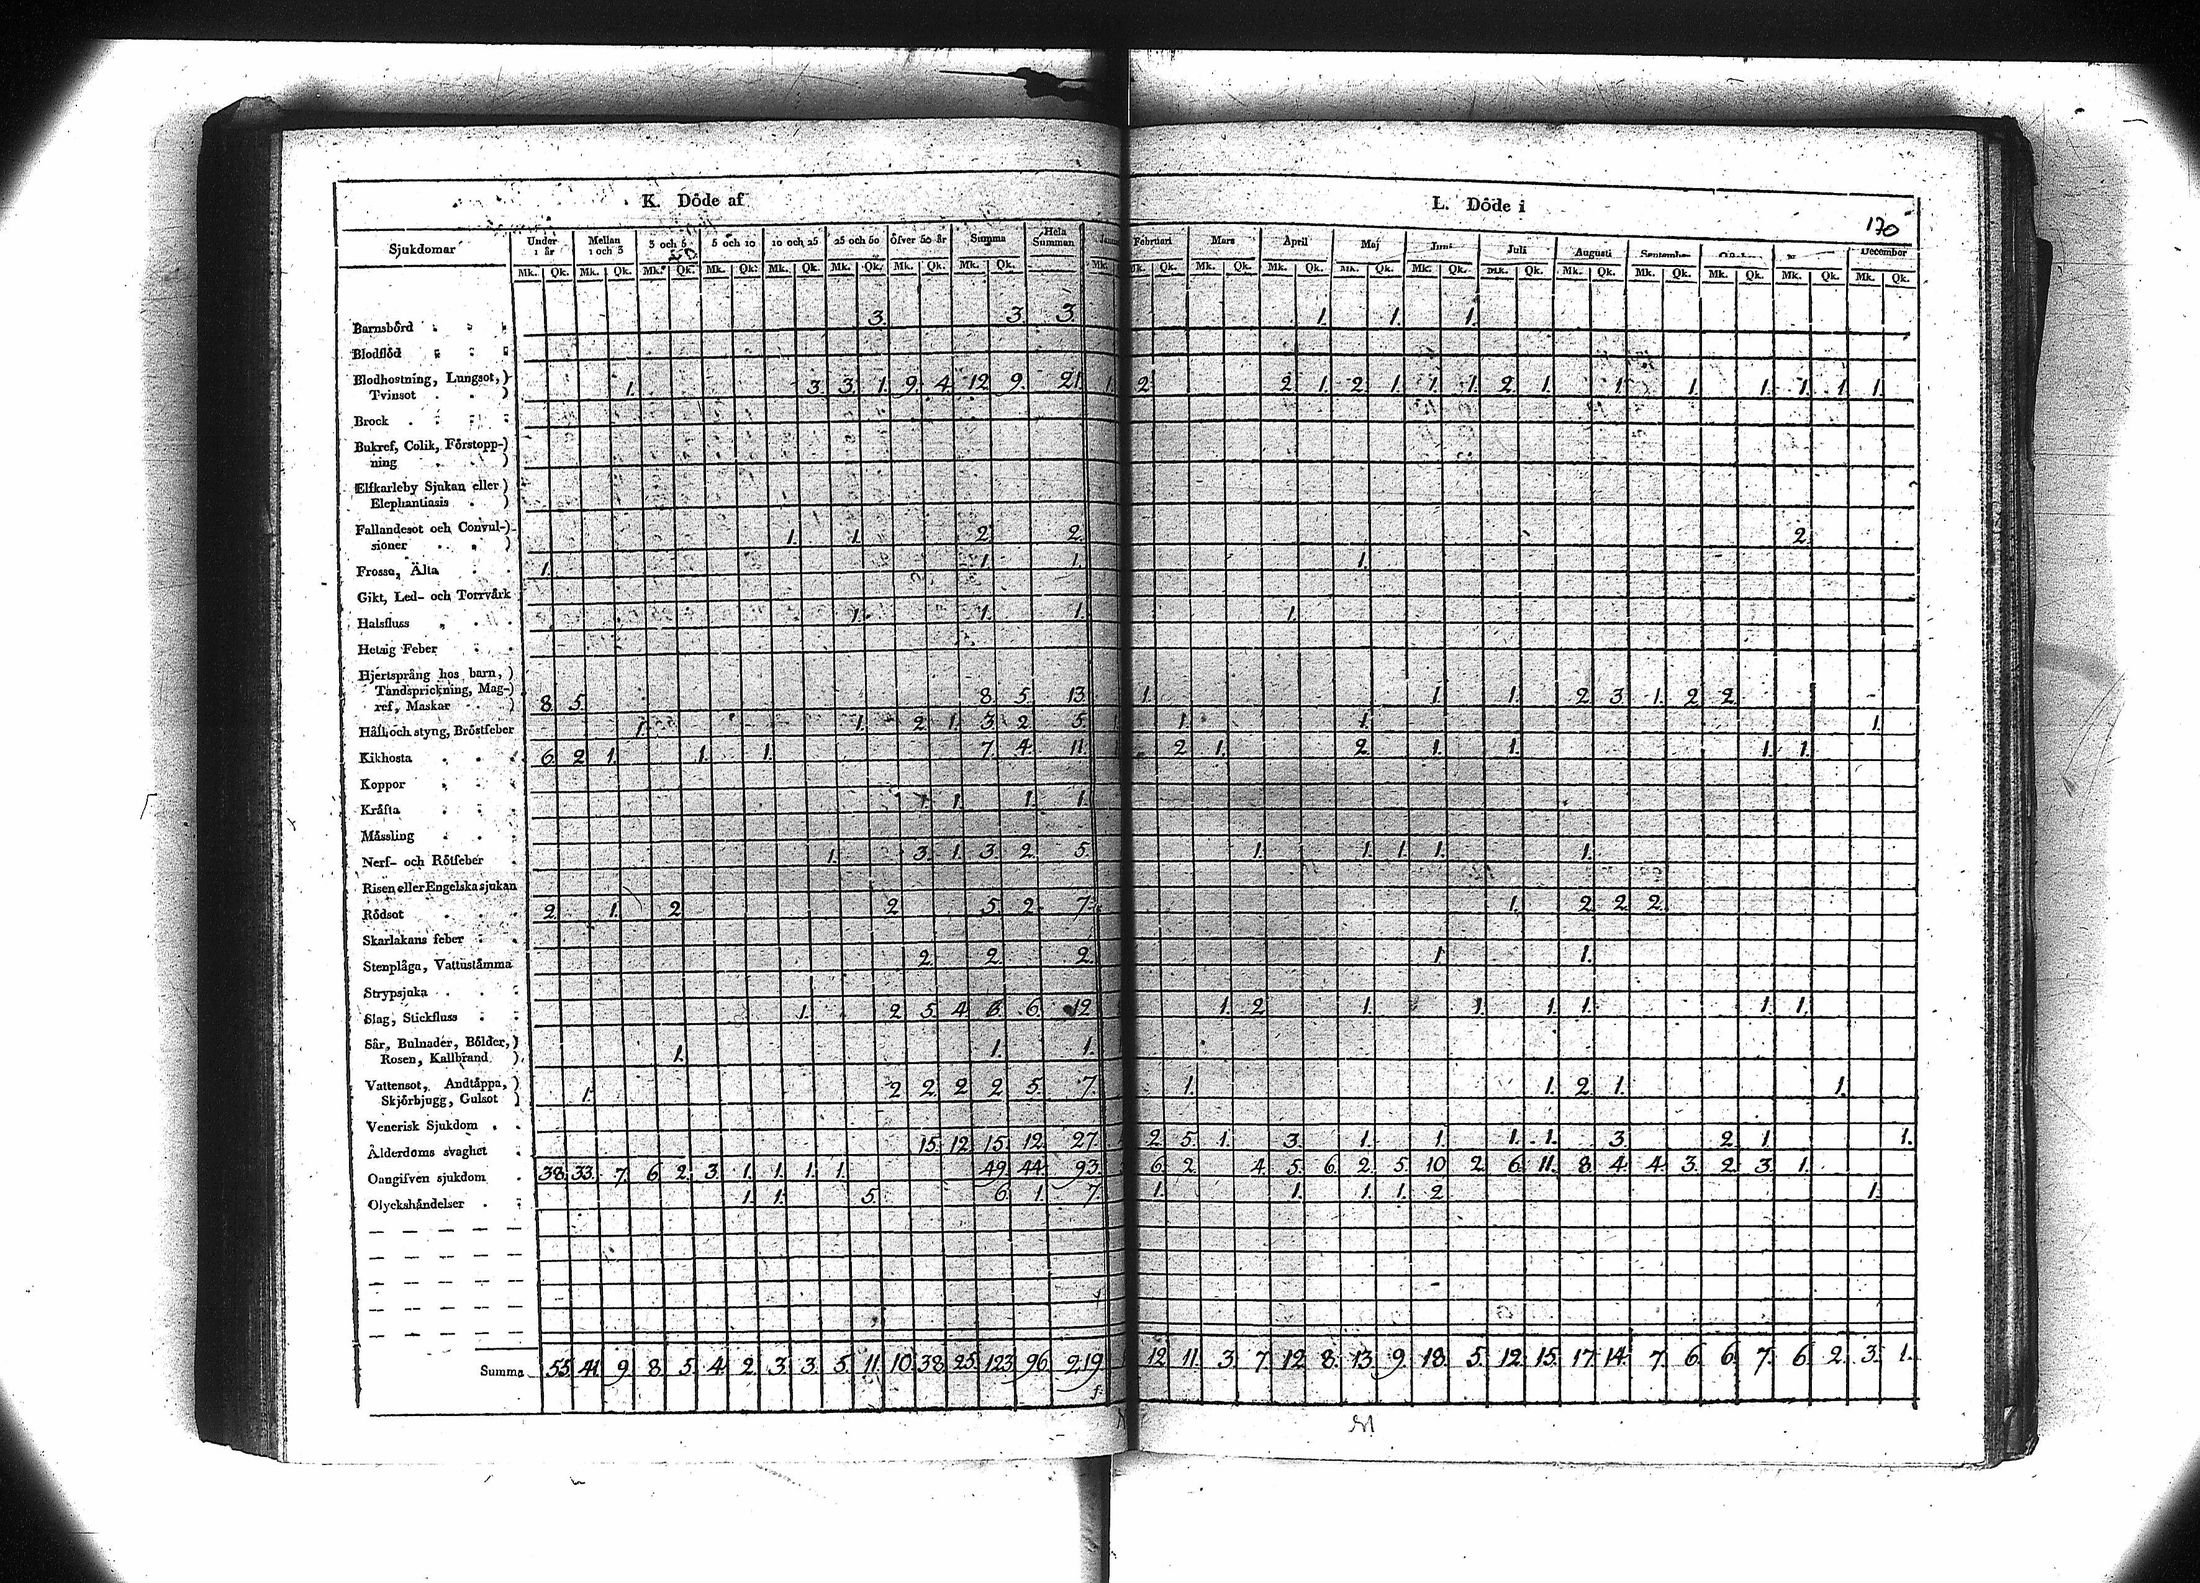 K. Döde af
L. Döde i
170
Sjukdomar Under 1 år Mellan 1 och 3 3 och 5 5 och 10 10 och 25 25 och 50 Öfver 50 år Summa Hela Summan Februari Mars April Maj Juni Juli Augusti December
Mk. Qk. Mk. Qk. Mk. Qk. Mk. Qk. Mk. Qk. Mk. Qk. Mk. Qk. Mk. Qk. Mk. Mk. Qk. Mk. Qk. Mk. Qk. Mk. Qk. Mk. Qk. Mk. Qk. Mk. Qk. Mk. Qk. Mk. Qk. Mk. Qk. Mk. Qk.
Barnsbörd 3. 3. 3. 1. 1. 1.
Blodflöd
Blodhostning, Lungsot,)
Tvinsot ) 1. 3. 3. 1. 9. 4. 12. 9. 21. 1. 2. 2. 1. 2. 1. 1. 1. 2. 1. 1. 1. 1. 1. 1. 1.
Brock
Bukref, Colik, Förstopp-)
ning )
Elfkarleby Sjukan eller)
Elephantiasis )
Fallandesot och Convul-)
sioner ) 1. 1. 2. 2. 2.
Frossa, Älta 1. 1. 1. 1.
Gikt, Led- och Torrvärk
Halsfluss 1. 1. 1. 1.
Hetsig Feber
Hjertsprång hos barn,)
Tandsprickning, Mag-)
ref, Maskar ) 8. 5. 8. 5. 13. 1. 1. 1. 2. 3. 1. 2. 2.
Håll och styng, Bröstfeber 1. 1. 2. 1. 3. 2. 5. 1. 1. 1. 1.
Kikhosta 6. 2. 1. 1. 1. 7. 4. 11. 1. 2. 1. 2. 1. 1. 1. 1.
Koppor
Kräfta 1. 1. 1.
Mässling
Nerf- och Rötfeber 1. 3. 1. 3. 2. 5. 1. 1. 1. 1. 1.
Risen eller Engelska sjukan
Rödsot 2. 1. 2. 2. 5. 2. 7. 1. 2. 2. 2.
Skarlakans feber
Stenplåga, Vattustämma 2. 2. 2. 1. 1.
Strypsjuka
Slag, Stickfluss 1. 2. 5. 4. 6. 6. 12. 1. 2. 1. 1. 1. 1. 1. 1.
Sår, Bulnader, Bölder,)
Rosen, Kallbrand ) 1. 1. 1.
Vattensot, Andtäppa,)
Skjörbjugg, Gulsot ) 1. 2. 2. 2. 2. 5. 7. 1. 1. 2. 1. 1.
Venerisk Sjukdom
Ålderdoms svaghet 15. 12. 15. 12. 27. 2. 5. 1. 3. 1. 1. 1. 1. 3. 2. 1. 1.
Oangifven sjukdom 38. 33. 7. 6. 2. 3. 1. 1. 1. 1. 49. 44. 93. 6. 2. 4. 5. 6. 2. 5. 10. 2. 6. 11. 8. 4. 4. 3. 2. 3. 1.
Olyckshändelser 1. 1. 5. 6. 1. 7. 1. 1. 1. 1. 2. 1.
Summa 55. 41. 9. 8. 5. 4. 2. 3. 3. 5. 11. 10. 38. 25. 123. 96. 219. 12. 11. 3. 7. 12. 8. 13. 9. 18. 5. 12. 15. 17. 14. 7. 6. 6. 7. 6. 2. 3. 1.